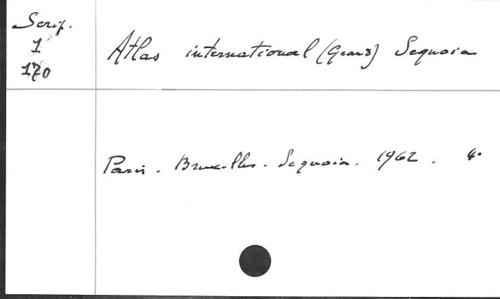 Scrip.
1
170
Atlas international (Grand) Sequoia
Paris. Bruxelles. Sequoia. 1962. 4°